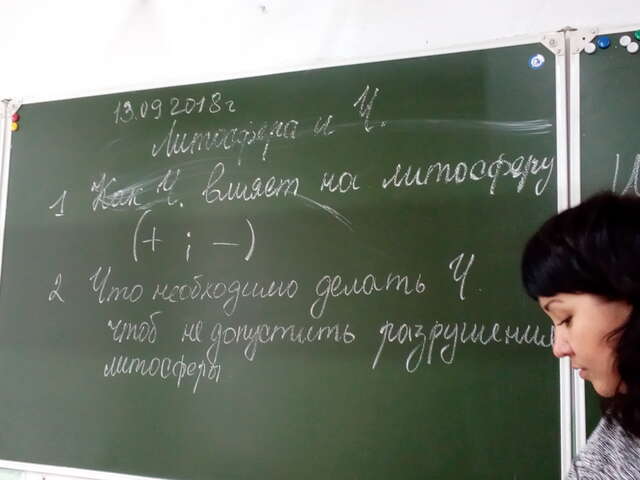 13.09 2018 г
Литосфера и Ч.
1 Как Ч. влияет на литосферу
(+ ; −)
2 Что необходимо делать Ч.
чтоб не допустить разрушения
литосферы